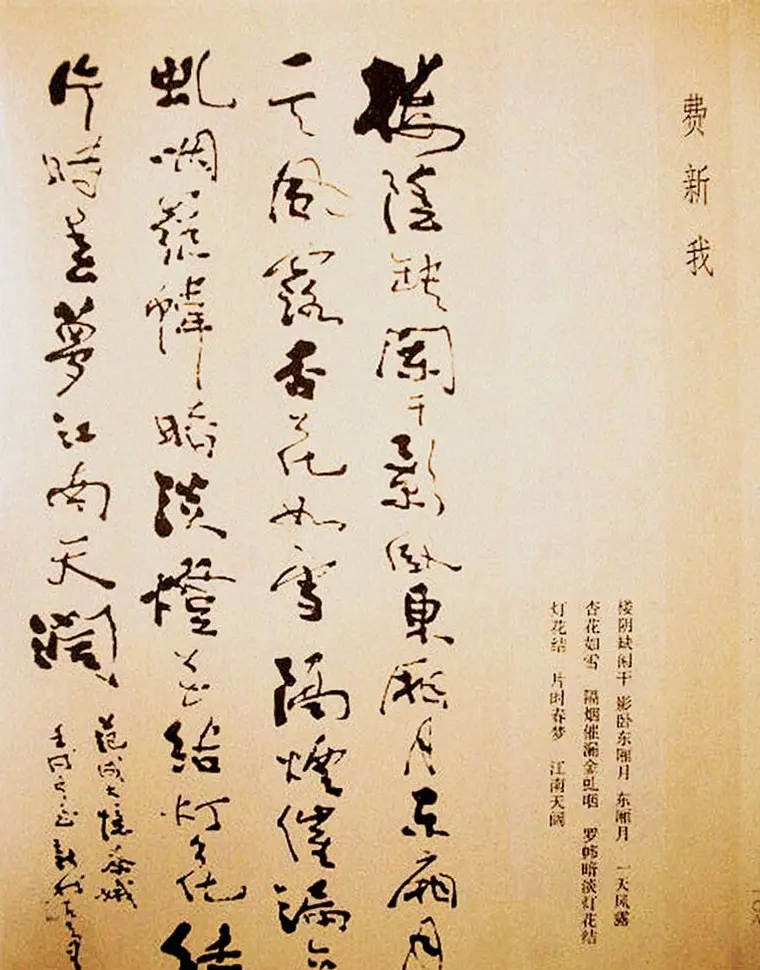 费新我
楼阴缺阑干影卧东厢月东厢月
一天风露杏花如雪隔煙催漏金
虬咽羅幃暗淡燈花结灯花结
片時春夢江南天闊
范成大憶秦娥
楼阴缺阑干 影卧东厢月 东厢月 一天风露
杏花如雪 隔烟催漏金虬咽 罗帏暗淡灯花结
灯花结 片时春梦 江南天阔